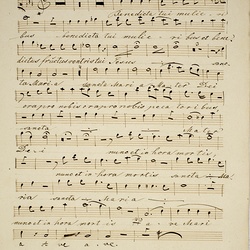 benedicta tu mulie - ri
bus - benedicta tu mulie - ri bus et bene
dictus fructus ventris tui Jesus - sanc
ta Maria sancta Mari a Mater De i
ora pro nobis ora pro nobis pecca to ri bus
sancta - Mater
De - i nunc et in hora mortis
nunc et in hora mortis sancta - Ma
ria sancta Maria
nunc et in hora mort is - a ve Mari
a a ve a ve.